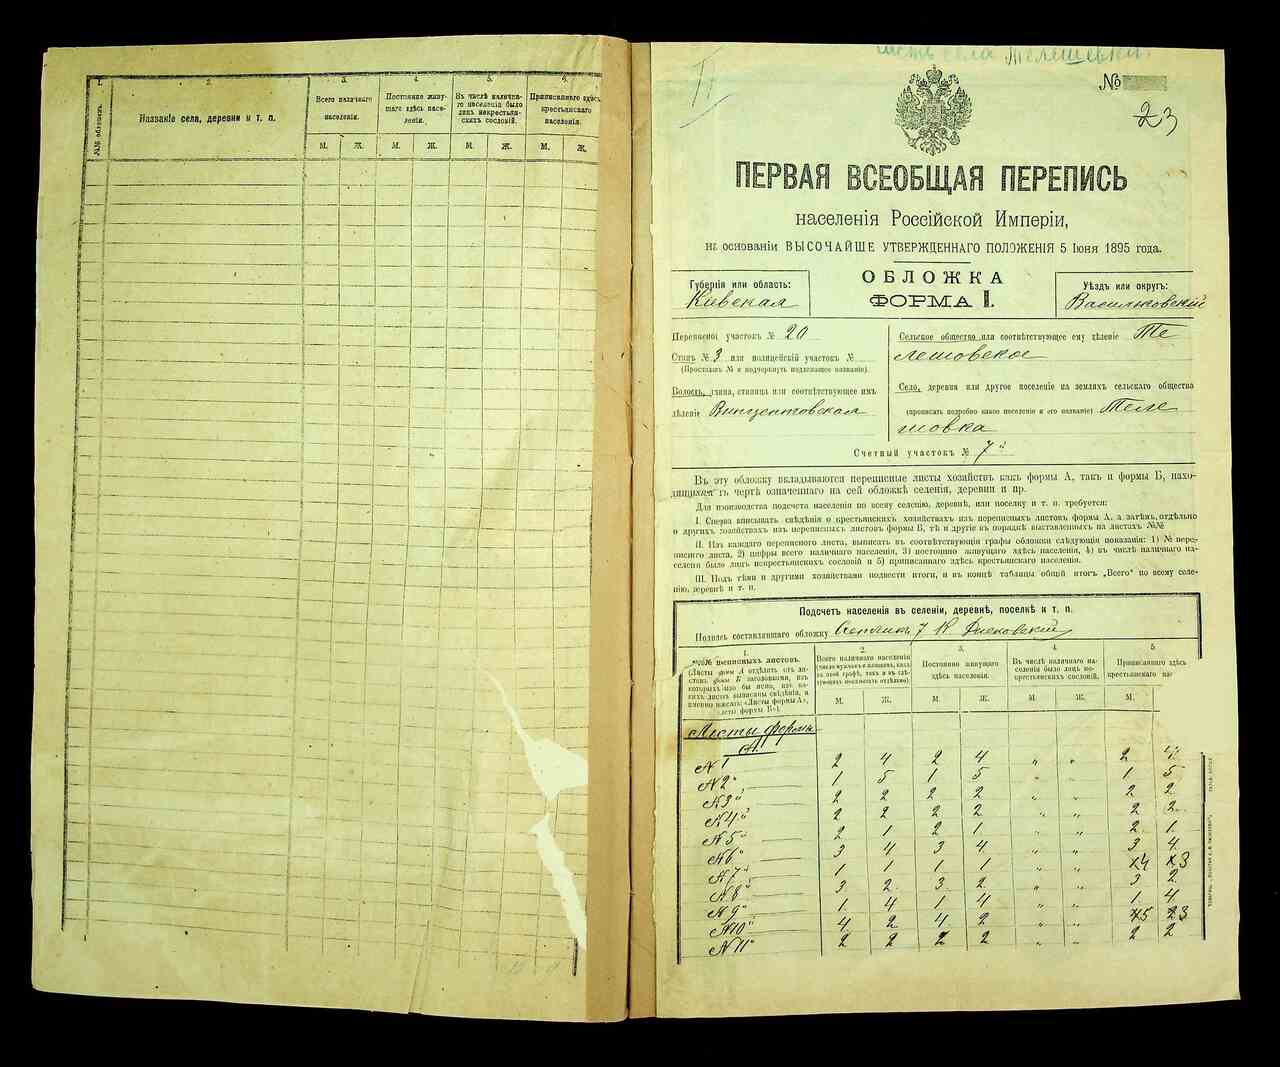 1.
2.
3.
4.
5.
6.
№№ обложекъ.
Названіе села, деревни и т. п.
Всего наличнаго населенія.
Постоянно живущаго здѣсь населенія.
Въ числѣ наличнаго населенія было лицъ некрестьянскихъ сословій.
Приписаннаго здѣсь крестьянскаго населенія.
М. Ж. М. Ж. М. Ж. М. Ж.
села Телешевки
№
23
ПЕРВАЯ ВСЕОБЩАЯ ПЕРЕПИСЬ
населенія Россійской Имперіи,
на основаніи ВЫСОЧАЙШЕ УТВЕРЖДЕННАГО ПОЛОЖЕНІЯ 5 Іюня 1895 года.
ОБЛОЖКА
ФОРМА I.
Губернія или область:
Кіевская
Уѣздъ или округъ:
Васильковскій
Переписной участокъ № 20
Станъ № 3 или полицейскій участокъ №
(Проставить № и подчеркнуть подлежащее названіе).
Волость, гмина, станица или соотвѣтствующее имъ
дѣленіе Винцентовская
Сельское общество или соотвѣтствующее ему дѣленіе Те
лешовское
Село, деревня или другое поселеніе на земляхъ сельскаго общества
(прописать подробно какое поселеніе и его названіе) Теле
шовка
Счетный участокъ № 7й
Въ эту обложку вкладываются переписные листы хозяйствъ какъ формы А, такъ и формы Б, нахо-
дящихся въ чертѣ означеннаго на сей обложкѣ селенія, деревни и пр.
Для производства подсчета населенія по всему селенію, деревнѣ, или поселку и т. п. требуется:
I. Сперва вписывать свѣдѣнія о крестьянскихъ хозяйствахъ изъ переписныхъ листовъ формы А, а затѣмъ, отдѣльно
о другихъ хозяйствахъ изъ переписныхъ листовъ формы Б, тѣ и другіе въ порядкѣ выставленныхъ на листахъ №№
II. Изъ каждаго переписного листа, выписать въ соотвѣтствующія графы обложки слѣдующія показанія: 1) № пере-
писнаго листа, 2) цифры всего наличнаго населенія, 3) постоянно живущаго здѣсь населенія, 4) въ числѣ наличнаго на-
селенія было лицъ некрестьянскихъ сословій и 5) приписаннаго здѣсь крестьянскаго населенія.
III. Подъ тѣми и другими хозяйствами подвести итоги, и въ концѣ таблицы общій итогъ „Всего" по всему селе-
нію, деревнѣ и т. п.
Подсчетъ населенія въ селеніи, деревнѣ, поселкѣ и т. п.
Подпись составлявшаго обложку Счетчикъ 7
1.
№№ переписныхъ листовъ.
(Листы формы А отдѣлить отъ ли-
стовъ формы Б заголовками, изъ
которыхъ было бы ясно, изъ ка-
кихъ листовъ выписаны свѣдѣнія, а
именно писать: «Листы формы А»,
«Листы формы Б»).
2.
Всего наличнаго населенія
3.
Постоянно живущаго
здѣсь населенія.
4.
Въ числѣ наличнаго на-
селенія было лицъ не-
крестьянскихъ сословій.
5
Приписаннаго здѣсь
крестьянскаго нас
М. Ж. М. Ж. М. Ж. М.
Листы формы
А.
№ 1 2 4 2 4 „ „ 2 4
№ 2й 1 5 1 5 „ „ 1 5
№ 3й 2 2 2 2 „ „ 2 2
№ 4й 2 2 2 2 „ „ 2 2
№ 5й 2 1 2 1 „ „ 2 1
№ 6й 3 4 3 4 „ „ 3 4
№ 7й 1 1 1 1 „ „ 4 3
№ 8й 3 2 3 2 „ „ 3 2
№ 9й 1 4 1 4 „ „ 1 4
№ 10й 4 2 4 2 „ „ 5 3
№ 11й 2 2 2 2 „ „ 2 2